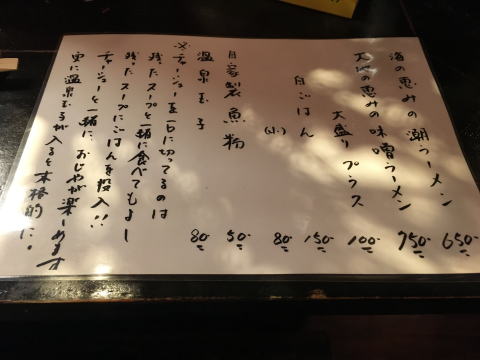 海の恵みの潮ラーメン 650-
天地の恵みの味噌ラーメン 750-
大盛りプラス 100-
白ごはん 150-
(小) 80-
自家製魚粉 50-
温泉玉子 80-
※チャーシューを一口に切ってるのは
残ったスープと一緒に食べてもよし
残ったスープにごはんを投入!!
チャーシューと一緒に、おじやが楽しめます
更に温泉玉子が入ると本格的に!